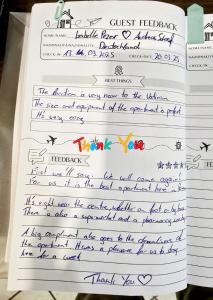 GUEST FEEDBACK
HOME NAME: Isabelle Pezer ♡ Andreas
NATIONALITY: Deutschland
CHECK-IN: 13.04.2025 CHECK-OUT: 20.04.25
BEST THINGS
The location is very near to the Vatican
The size and equipment of the apartment is perfect
It's very
Thank You
FEEDBACK
First we'll say: we will come again!
For us it is the best apartment here in Rome
It's right near the centre, whether on foot or by
There is also a supermarket and a pharmacy nearby
A big compliment also goes to the
of the apartment. It was a pleasure for us to be
here for a week
Thank You ♡